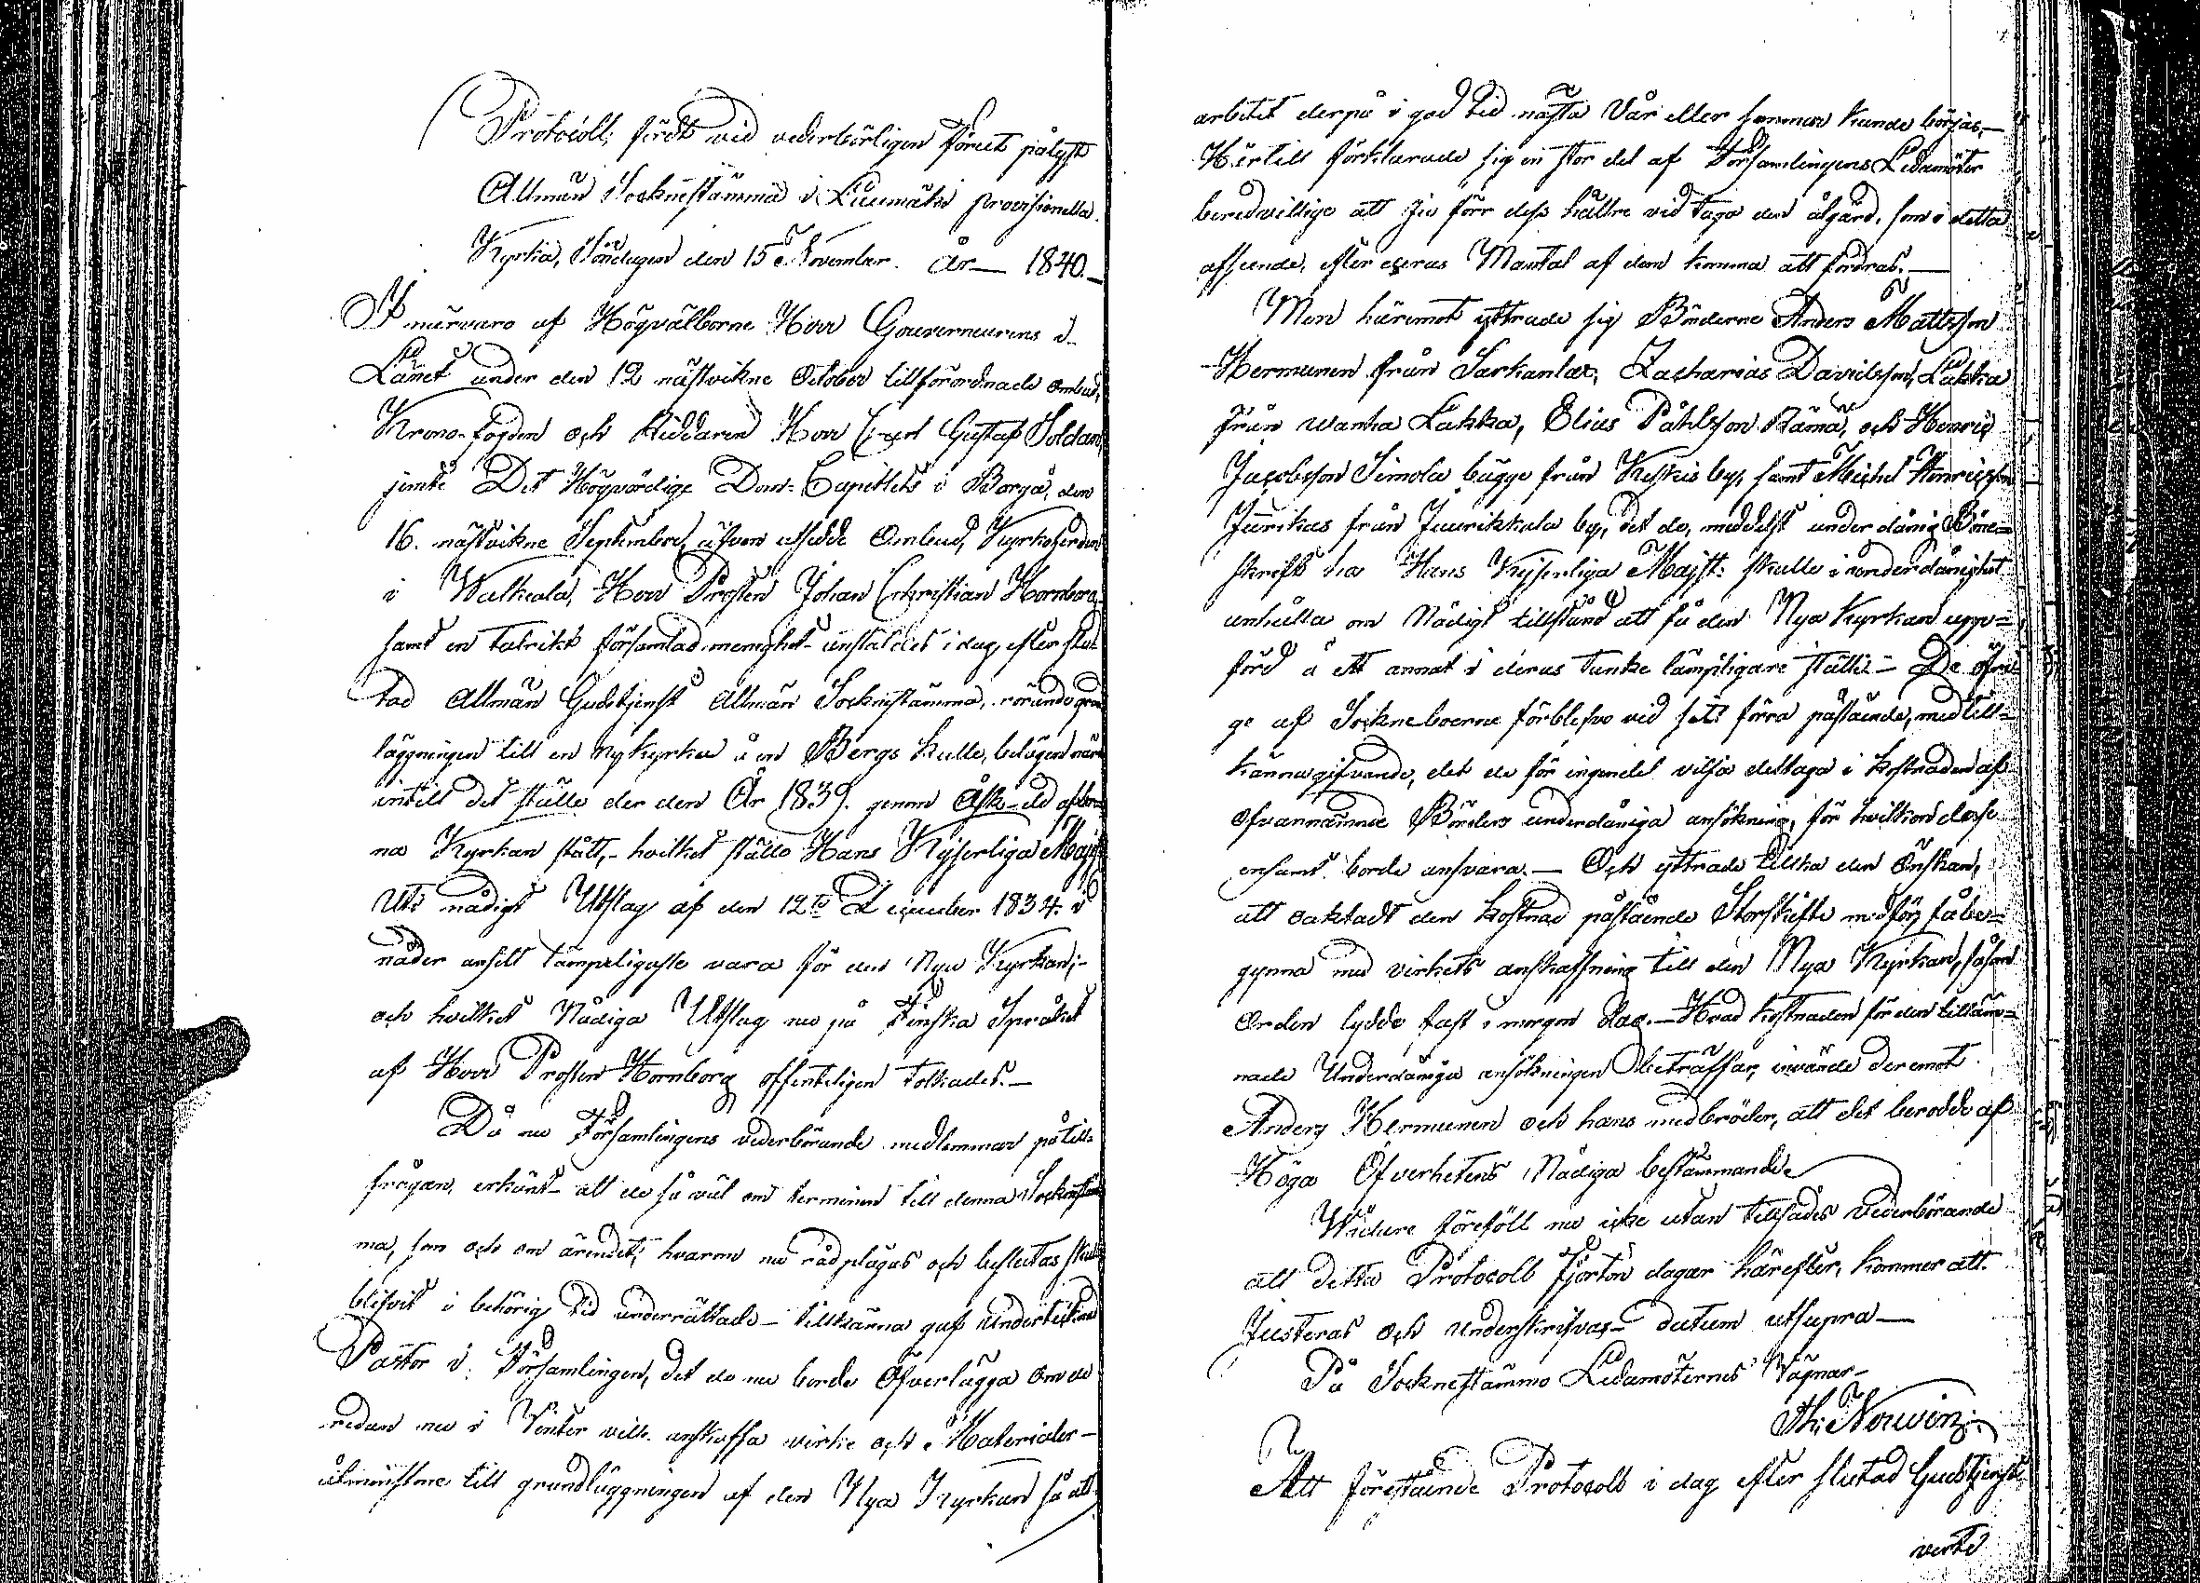 Protocoll, fördt vid vederbörligen förut pålyst
Allmän Socknestämma i Luumäki provisionella
Kyrka, Söndagen den 15 November År 1840.
I närvaro af Högvälborne Herr Gouverneurens i
Länet under den 12 nästvikne October tillförordnade ombud,
Krono-fogden och Riddaren Herr Carl Gustaf Soldan,
jemte Det Högvördige Dom-Capitlets i Borgå, den
16. nästvikne September, äfven utsedde Ombud, Kyrkoherden
i Walkeala, Herr Prosten Johan Christian Hornborg,
samt en talrikt församlad menighet anstäldes i dag, efter slu-
tad Allmän Gudstjenst Allmän Socknestämma, rörande grund
läggningen till en ny kyrka å en Bergs kulle, belägen när
intill det ställe der den År 1839. genom Åsk-eld afbrun
na Kyrkan stått, hvilket ställe Hans Kejserliga Majst
Uti nådigt Utslag af den 12te December 1834. i
nåder ansett lämpeligaste vara för den Nya Kyrkan;-
och hvilket Nådiga Utslag nu på Finska Språket
af Herr Prosten Hornborg offenteligen tolkades.-
Då nu Församlingens vederbörande medlemmar på till-
frågan, erkänt att de så väl om terminen till denna Socknestäm
ma, som och om ärendet, hvarom nu rådplägas och beslutas skulle
blifvit i behörig tid underrättade - tillkänna gaf undertecknad
Pastor i Församlingen, det de nu borde Öfverlägga om de
redan nu i Vinter vill anskaffa virke och Materialier-
åtminstone till grundläggningen af den Nya Kyrkan så att
arbetet derpå i god tid nästa Vår eller sommar kunde börjas,-
Härtill förklarade sig en stor del af Församlingens Ledamöter
beredvillige att ju förr dess hällre vid taga den åtgärd, som i detta
afseende, efter deras Mantal af dem komma att fordras.-
Men häremot yttrade sig Bönderne Anders Mattsson
Hermunen från Sarkanlax, Zacharias Davidsson, Lakka
från wanha Lakka, Elias Påhlsson Rämä, och Henric
Jacobsson Simola bägge från Keskis by, samt Michel Henricsson
Juurikas från Juurikkala by, det de, medelst underdånig Böne-
skrift hos Hans Kejserliga Majst: skulle i underdånighet
anhålla om Nådigt tillstånd att få den Nya Kyrkan upp-
förd å ett annat i deras tanke lämpligare ställe - De öfri-
ge af Sockneboerne förblefvo vid sitt förra påstående, med till-
känna gifvande, det de för ingendel vilja deltaga i kostnaden af
ofvannämnde Bönders underdåniga ansökning, för hvilken desse
ensamt borde ansvara.- Och yttrade tillika den Önskan,
att oaktadt den kostnad påstående Storskifte medför, få be-
gynna med virkets anskaffning till den Nya Kyrkan, såsom
Orden lydde fast i morgon dag.- Hvad kostnaden för den tilläm-
nade Underdåniga ansökningen beträffar, invände deremot
Anders Hermunen och hans medbröder, att det berodde af
Höga Öfverhetens Nådiga bestämmande
Widare föreföll nu icke utan tillsades Vederbörande
att detta Protocoll fjorton dagar härefter, kommer att
Justeras och Underskrifvas - datum utsupra -
På Sockne stämmo Ledamöternes Vägnar-
Att förestående Protocoll i dag efter slutad Gudstjenst
verte